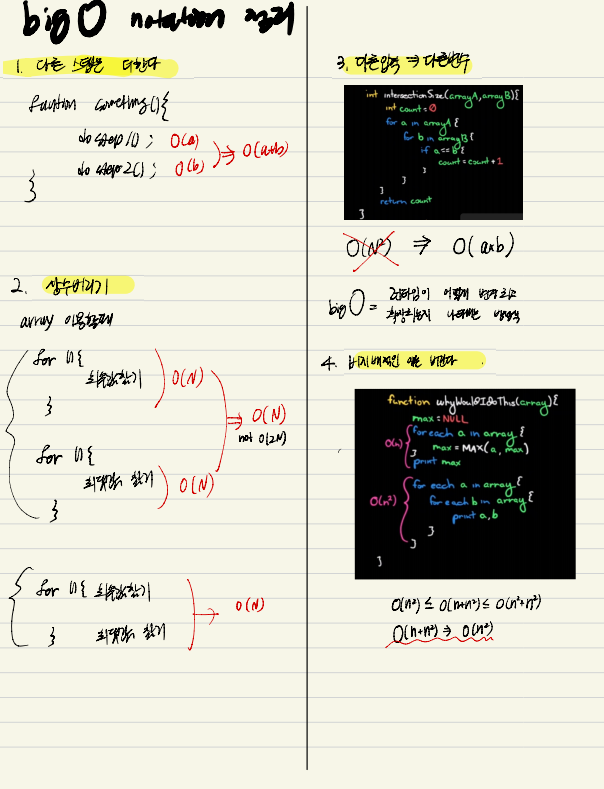 big O notation 정리
1. 다른 스텝은 더한다
function something(){
do step1(); O(a)
do step2(); O(b)
⇒ O(a+b)
}
2. 상수버리기
array 이용할때
for (){
최솟값찾기
}
O(N)
for (){
최댓값 찾기
}
O(N)
⇒ O(N)
not O(2N)
for (){ 최솟값찾기
} 최댓값 찾기
→ O(N)
3. 다른입력 ⇒ 다른변수
int intersectionSize(arrayA, arrayB){
int count=0
for a in arrayA {
for b in arrayB {
if a==B {
count = count + 1
}
}
}
return count
}
O(N²) ⇒ O(a×b)
big O = 런타임이 어떻게 변하고
확장되는지 나타내는 방법
4. 비지배적인 항은 버린다
function whyWouldIDoThis(array){
max = NULL
O(n)
for each a in array {
max = MAX(a, max)
}
print max
O(n²)
for each a in array {
for each b in array {
print a,b
}
}
}
O(n²) ≤ O(n+n²) ≤ O(n²+n²)
O(n+n²) ⇒ O(n²)